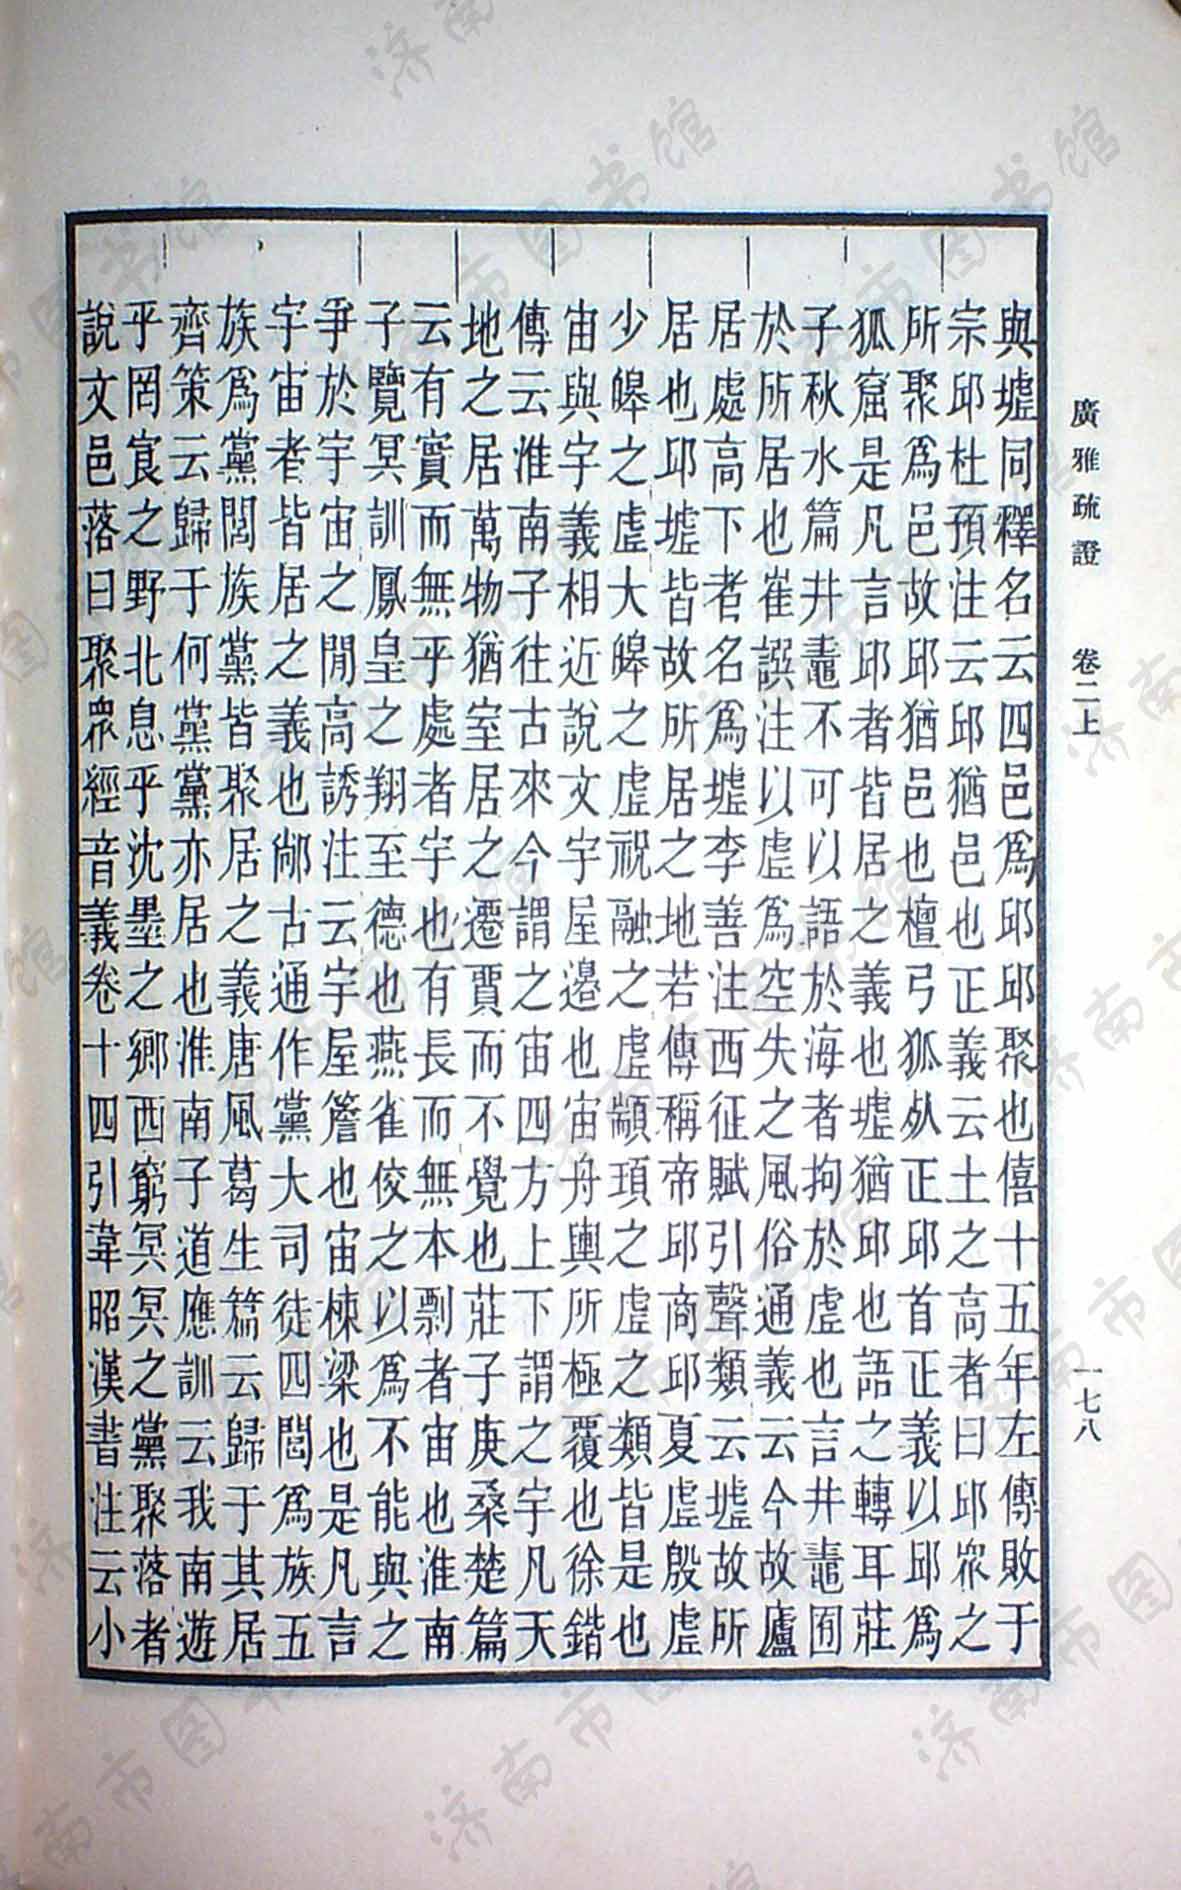 廣雅疏證　卷二上　一七八
與墟同釋名云四邑爲邱邱聚也僖十五年左傳敗于
宗邱杜預注云邱猶邑也正義云土之高者曰邱眾之
所聚爲邑故邱猶邑也檀弓狐死正邱首正義以邱爲
狐窟是凡言邱者皆居之義也墟猶邱也語之轉耳莊
子秋水篇井鼃不可以語於海者拘於虛也言井鼃囿
於所居也崔譔注以虛爲空失之風俗通義云今故廬
居處高下者名爲墟李善注西征賦引聲類云墟故所
居也邱墟皆故所居之地若傳稱帝邱商邱夏虛殷虛
少皞之虛大皞之虛祝融之虛顓頊之虛之類皆是也
宙與宇義相近說文宇屋邊也宙舟輿所極覆也徐鍇
傳云淮南子往古來今謂之宙四方上下謂之宇凡天
地之居萬物猶室居之遷賈而不覺也莊子庚桑楚篇
云有實而無乎處者宇也有長而無本剽者宙也淮南
子覽冥訓鳳皇之翔至德也燕雀佼之以爲不能與之
爭於宇宙之閒高誘注云宇屋簷也宙棟梁也是凡言
宇宙者皆居之義也鄺古通作黨大司徒四閭爲族五
族爲黨閭族黨皆聚居之義唐風葛生篇云歸于其居
齊策云歸于何黨黨亦居也淮南子道應訓云我南遊
乎罔㝗之野北息乎沈墨之鄉西窮冥冥之黨聚落者
說文邑落曰聚眾經音義卷十四引韋昭漢書注云小